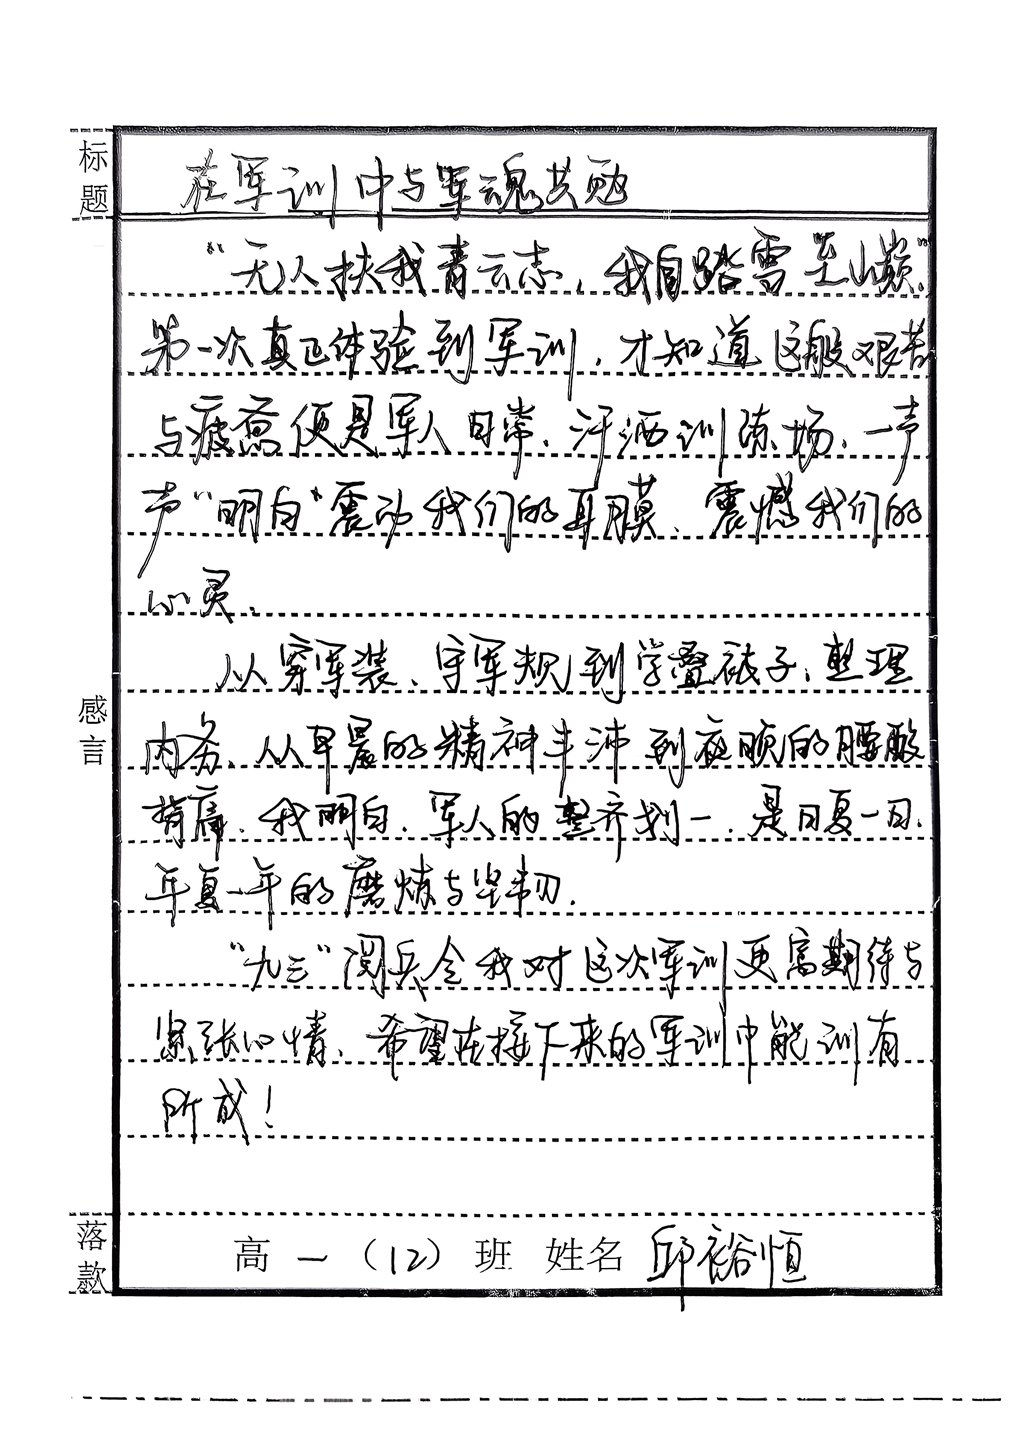 标题
在军训中与军魂共勉
“无人扶我青云志，我自踏雪至山巅”
第一次真正体验到军训，才知道这般艰苦
与疲惫便是军人日常。汗洒训练场，一声
声“明白”震动我们的耳膜，震撼我们的
心灵。
从穿军装、守军规到学叠被子，整理
内务，从早晨的精神丰沛到夜晚的腰酸
背痛，我明白，军人的整齐划一，是日复一日，
年复一年的磨炼与坚韧。
感言
“九三”阅兵令我对这次军训更富期待与
紧张心情，希望在接下来的军训中能训有
所成！
落款
高一（12）班 姓名 邱裕恒